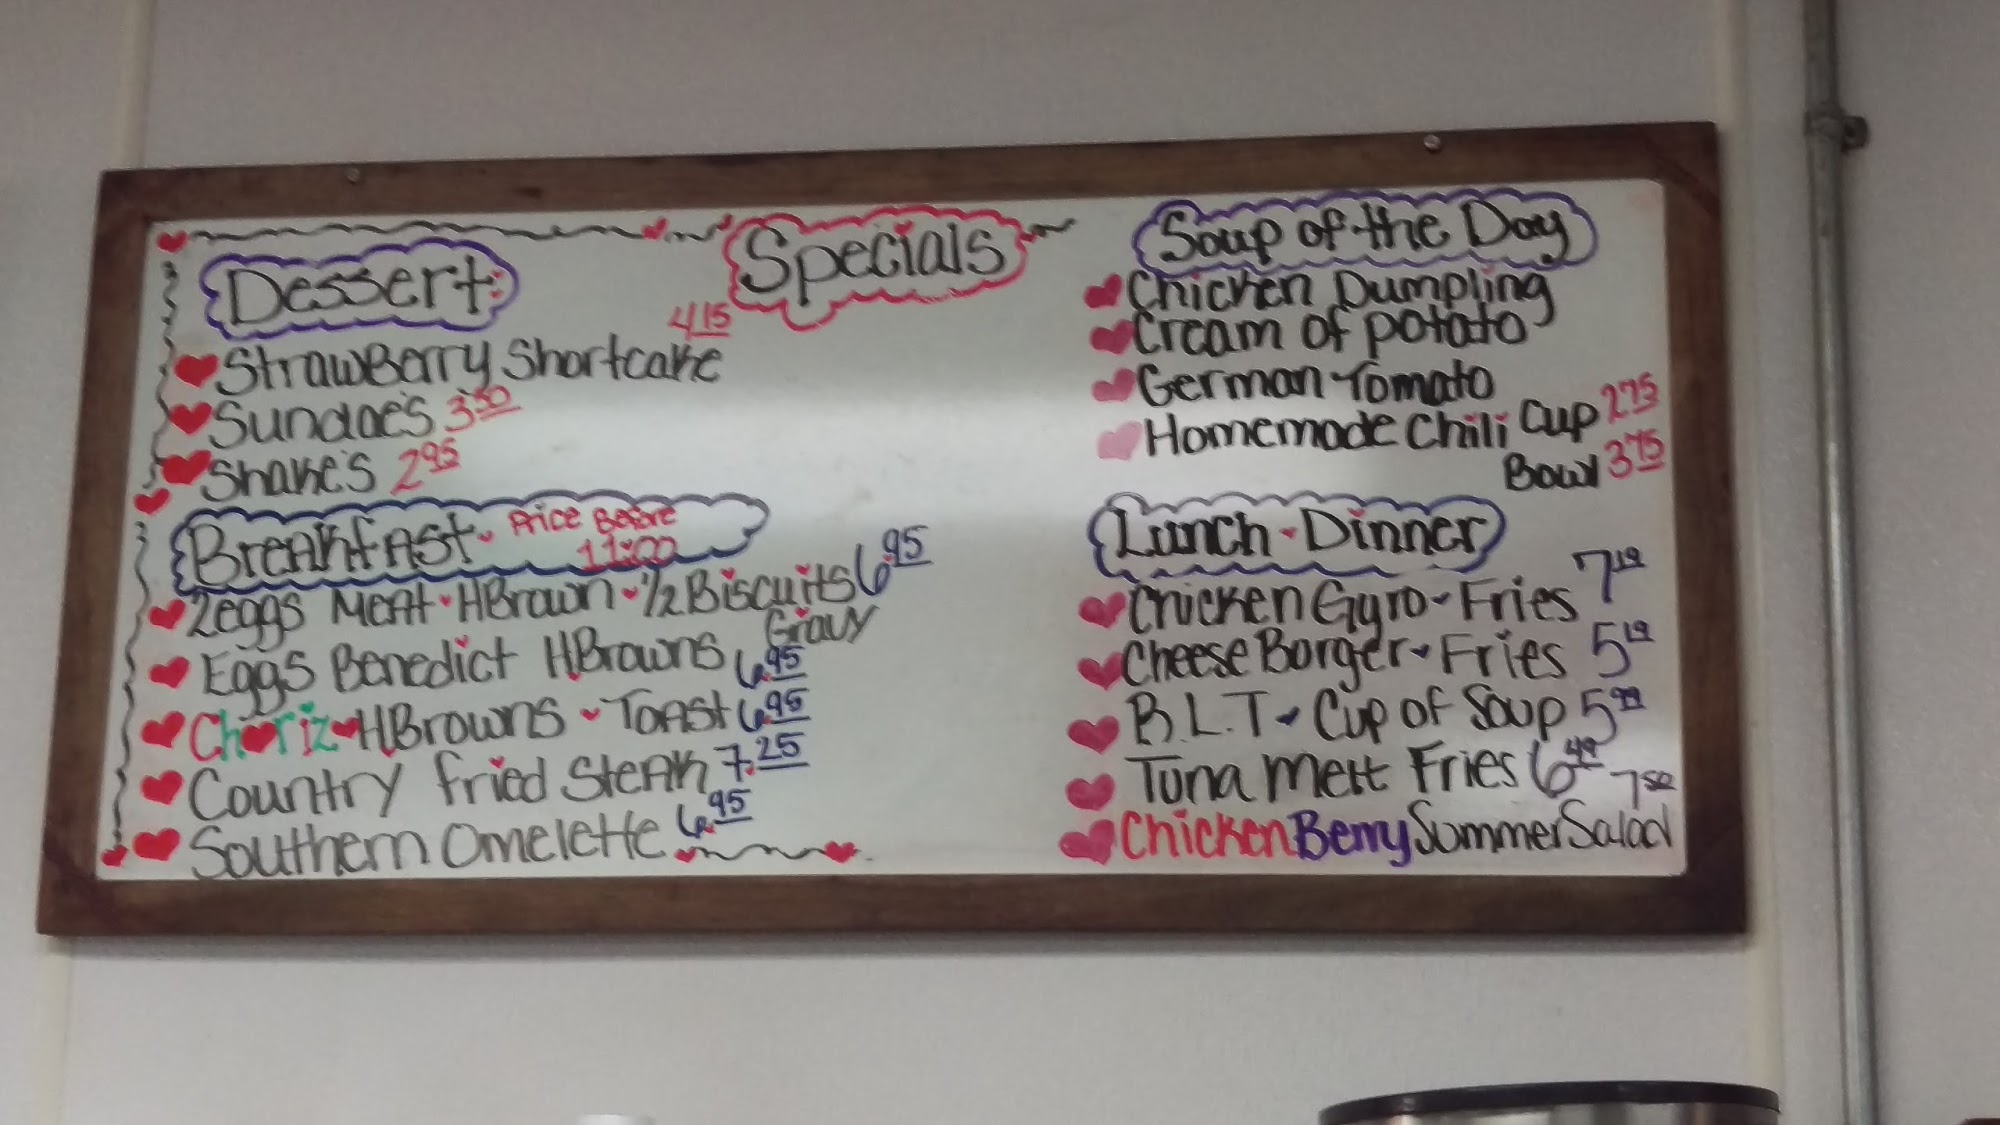 Specials
Dessert:
StrawBerry Shortcake 4.15
Sundae's 3.50
Shake's 2.95
Breakfast Price Before
11:00
2eggs Meat HBrown 1/2 Biscuits 6.95
Gravy
Eggs Benedict HBrowns 6.95
Choriz HBrowns Toast 6.95
Country fried Steak 7.25
Southern Omelette 6.95
Soup of the Day
Chicken Dumpling
Cream of potato
German Tomato
Homemade Chili Cup 2.75
Bowl 3.75
Lunch - Dinner
Chicken Gyro - Fries 7.19
Cheese Borger - Fries 5.19
B.L.T - Cup of Soup 5.99
Tuna Melt Fries 6.49
Chicken Berry Summer Salad 7.50